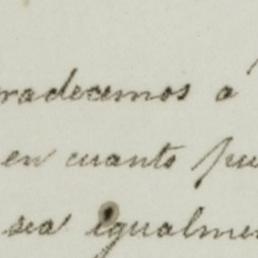 radecemos á
en cuanto pu
sea igualmen